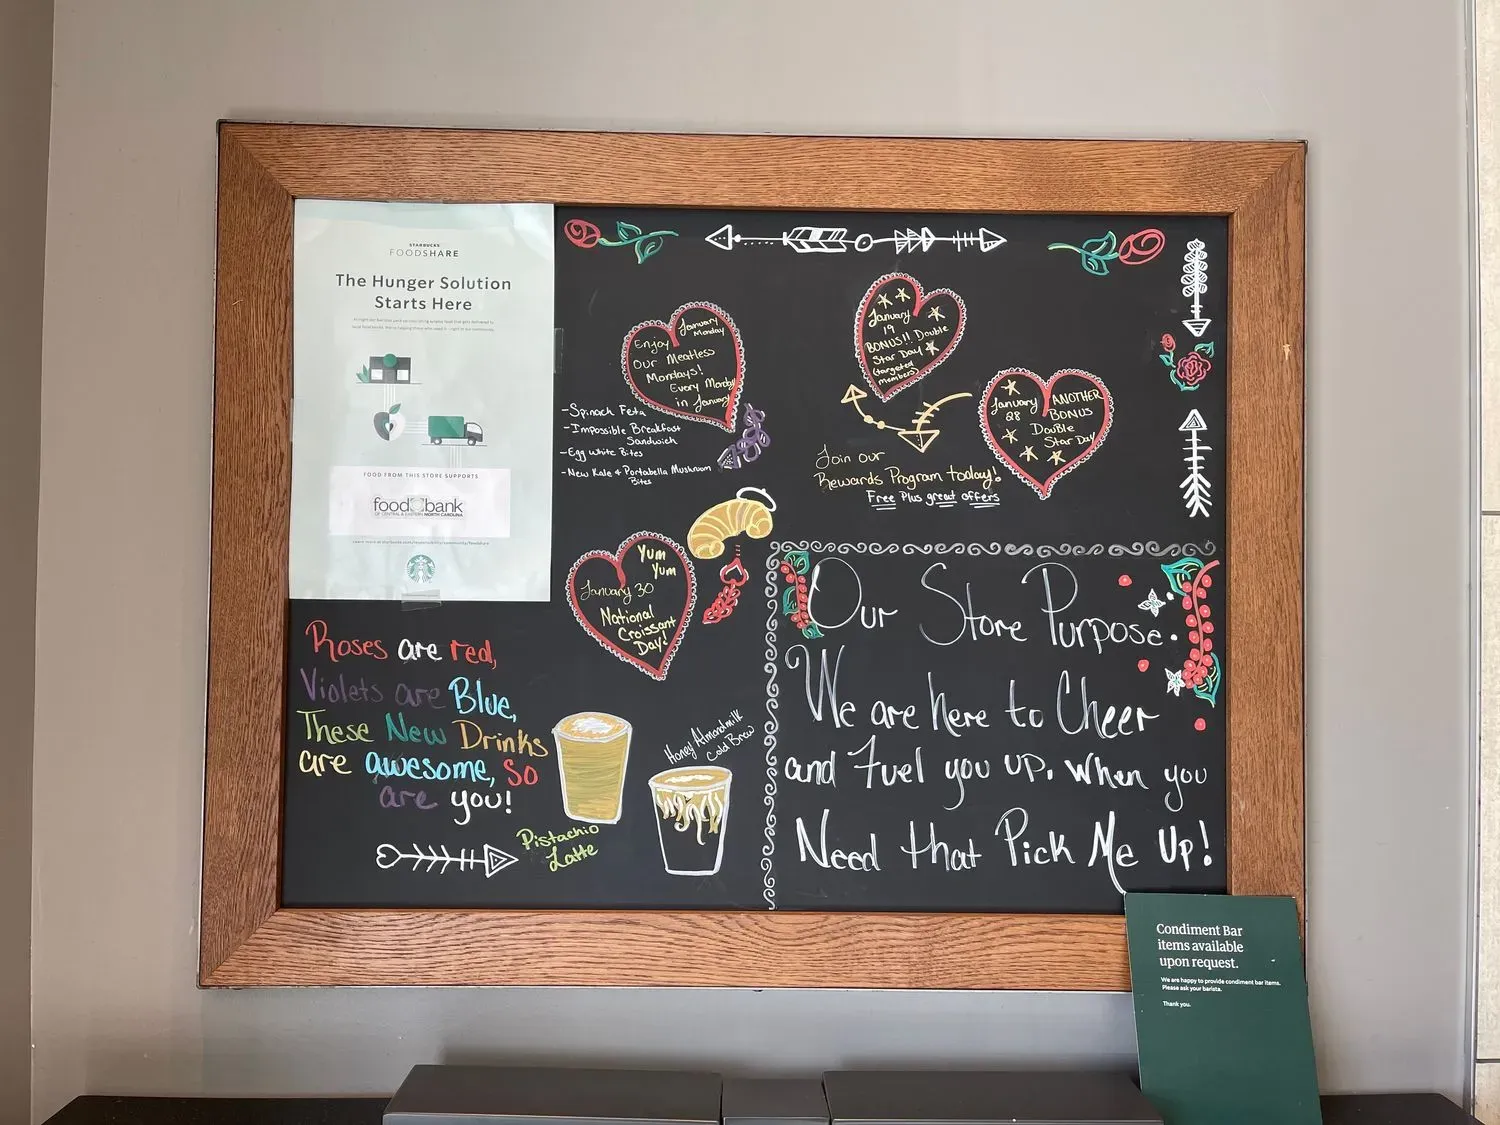 STARBUCKS
FOODSHARE
The Hunger Solution
Starts Here
FOOD FROM THIS STORE SUPPORTS
food bank
OF CENTRAL & EASTERN NORTH CAROLINA
Learn more at starbucks.com/responsibility/community/foodshare
January
Monday
Enjoy
Our Meatless
Mondays!
Every Monday
in January
-Spinach Feta
-Impossible Breakfast
Sandwich
-Egg White Bites
-New Kale & Portabella Mushroom
Bites
January
19
BONUS!! Double
Star Day
(targeted
members)
January
28
ANOTHER
BONUS
Double
Star Day
Join our
Rewards Program today!
Free Plus great offers
Yum
Yum
January 30
National
Croissant
Day!
Roses are red,
Violets are Blue,
These New Drinks
are awesome, So
are you!
Pistachio
Latte
Honey Almondmilk
Cold Brew
Our Store Purpose.
We are here to Cheer
and Fuel you up. When you
Need that Pick Me Up!
Condiment Bar
items available
upon request.
We are happy to provide condiment bar items.
Please ask your barista.
Thank you.